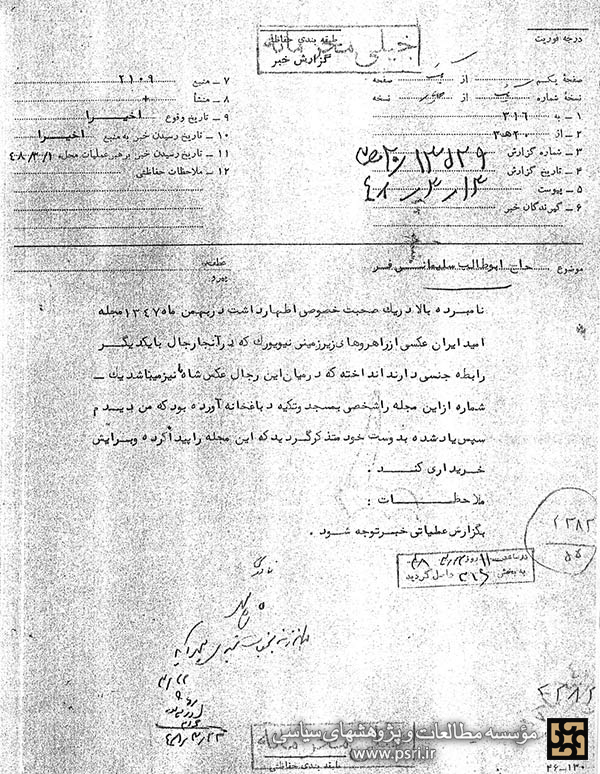 درجه فوریت
طبقه بندی حفاظتی
خیلی محرمانه
گزارش خبر
صفحه یکم از یک صفحه
نسخه شماره یک از نسخه
۱ ــ به ۳۱۶
۲ ــ از ۲۰ ه‍ ۳
۳ ــ شماره گزارش
۴ ــ تاریخ گزارش
۵ ــ پیوست
۶ ــ گیرندگان خبر
۷ ــ منبع ۲۱۰۹
۸ ــ منشأ +
۹ ــ تاریخ وقوع اخیرا
۱۰ ــ تاریخ رسیدن خبر به منبع اخیرا
۱۱ ــ تاریخ رسیدن خبر به رهبر عملیات محله ۴۸/۳/۱
۱۲ ــ ملاحظات حفاظتی
موضوع حاج ابوطالب سلیمانی فر
عطف
پیرو
نامبرده بالا در یك صحبت خصوصی اظهارداشت در بهمن ماه ۱۳۴۷ مجله
امید ایران عکسی از راهروهای زیرزمینی نیویورك که در آنجا رجال با یکدیگر
رابطه جنسی دارند انداخته که در میان این رجال عکس شاه نیز میباشد یك ــ
شماره از این مجله را شخصی بمسجد و تکیه دباغخانه آورده بود که من دیدم
سپس یاد شده بدوست خود متذکر گردید که این مجله را پیدا کرده و برایش
خریداری کند .
ملاحظات :
بگزارش عملیاتی خبر توجه شود .
در ساعت ۱۱ روز
به بخش ۳۱۶ واصل گردید
۲۳۸۲
۵۵
۴۸/۳/۲۲
خیلی محرمانه
طبقه بندی حفاظتی
مؤسسه مطالعات و پژوهشهای سیاسی
www.psri.ir
۲۶ ــ ۱۳۰